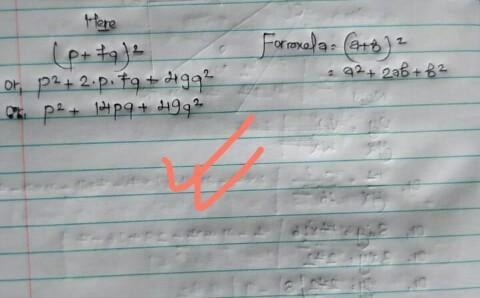 Here
(p + 7q)²
or, p² + 2·p·7q + 49q²
or, p² + 14pq + 49q²
Formula = (a+b)²
= a² + 2ab + b²